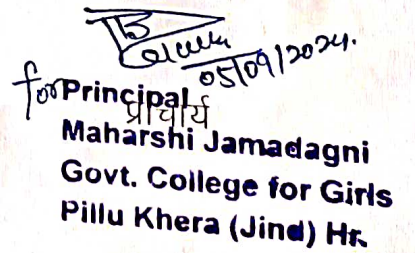 05/09/2024.
for Principal
प्राचार्य
Maharshi Jamadagni
Govt. College for Girls
Pillu Khera (Jind) Hr.